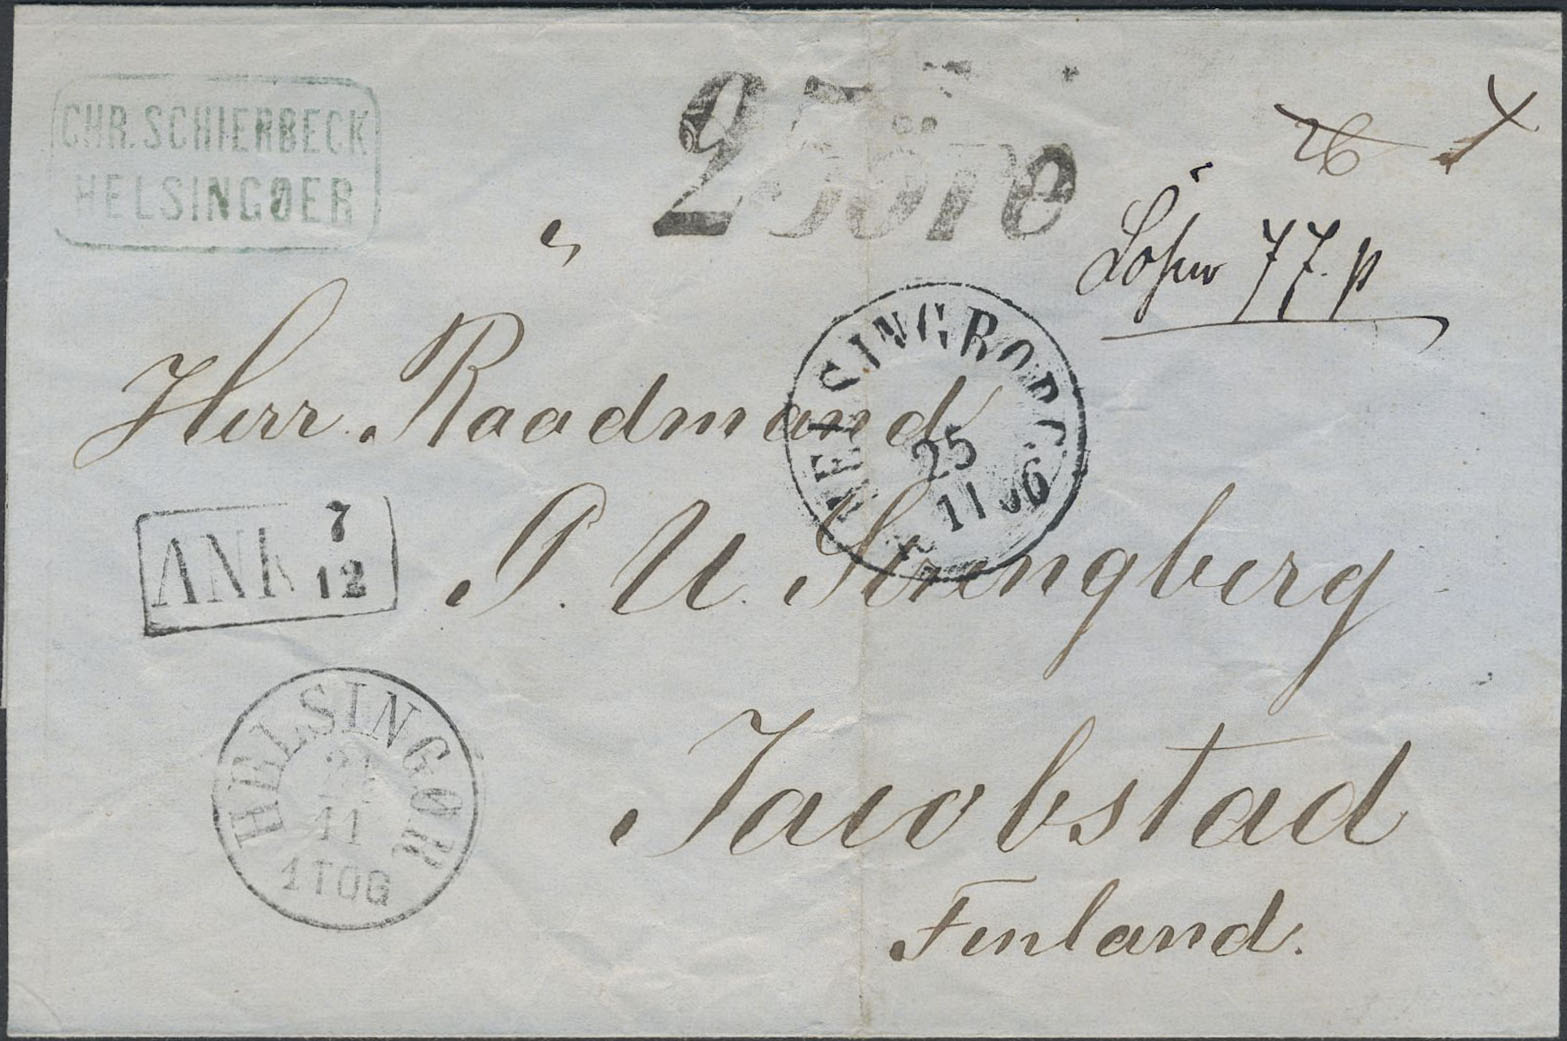 CHR. SCHIERBECK
HELSINGØER
25 öre
26
Lösen 77 p
Herr Raadmand
P. U. Strengberg
Jacobstad
Finland.
HELSINGBORG
25
11
ANK 7
12
HELSINGØR
11
1 TOG